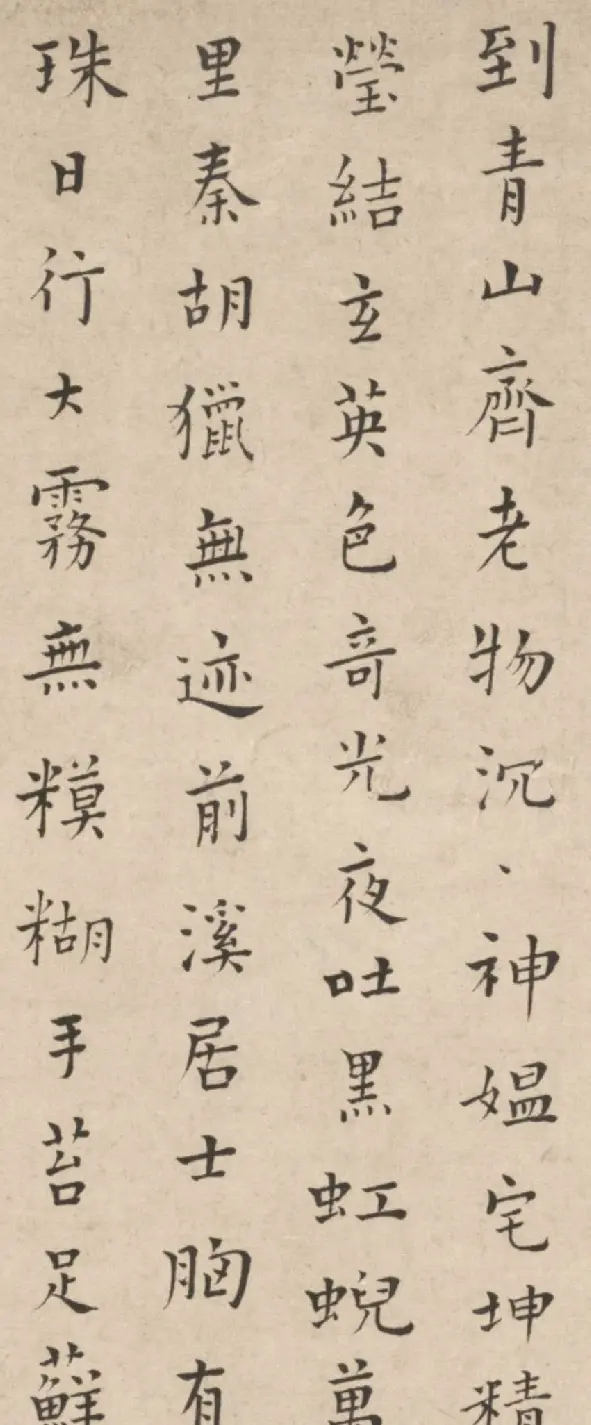 到青山齊老物沉、神媪宅坤精
瑩結玄英色奇光夜吐黑虹蜺萬
里秦胡獵無迹前溪居士胸有
珠日行大霧無糢糊手苔足蘚